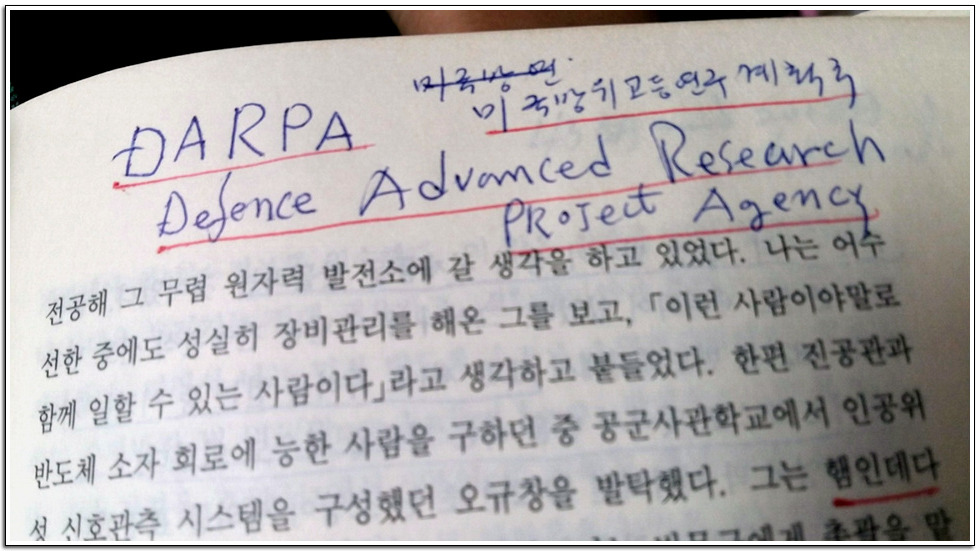 미국방연
DARPA 미국방위고등연구계획국
Defence Advanced Research
PRoJect Agency
전공해 그 무렵 원자력 발전소에 갈 생각을 하고 있었다. 나는 어수
선한 중에도 성실히 장비관리를 해온 그를 보고, 「이런 사람이야말로
함께 일할 수 있는 사람이다」라고 생각하고 붙들었다. 한편 진공관과
반도체 소자 회로에 능한 사람을 구하던 중 공군사관학교에서 인공위
성 신호관측 시스템을 구성했던 오규창을 발탁했다. 그는 햄인데다
총괄을 맡